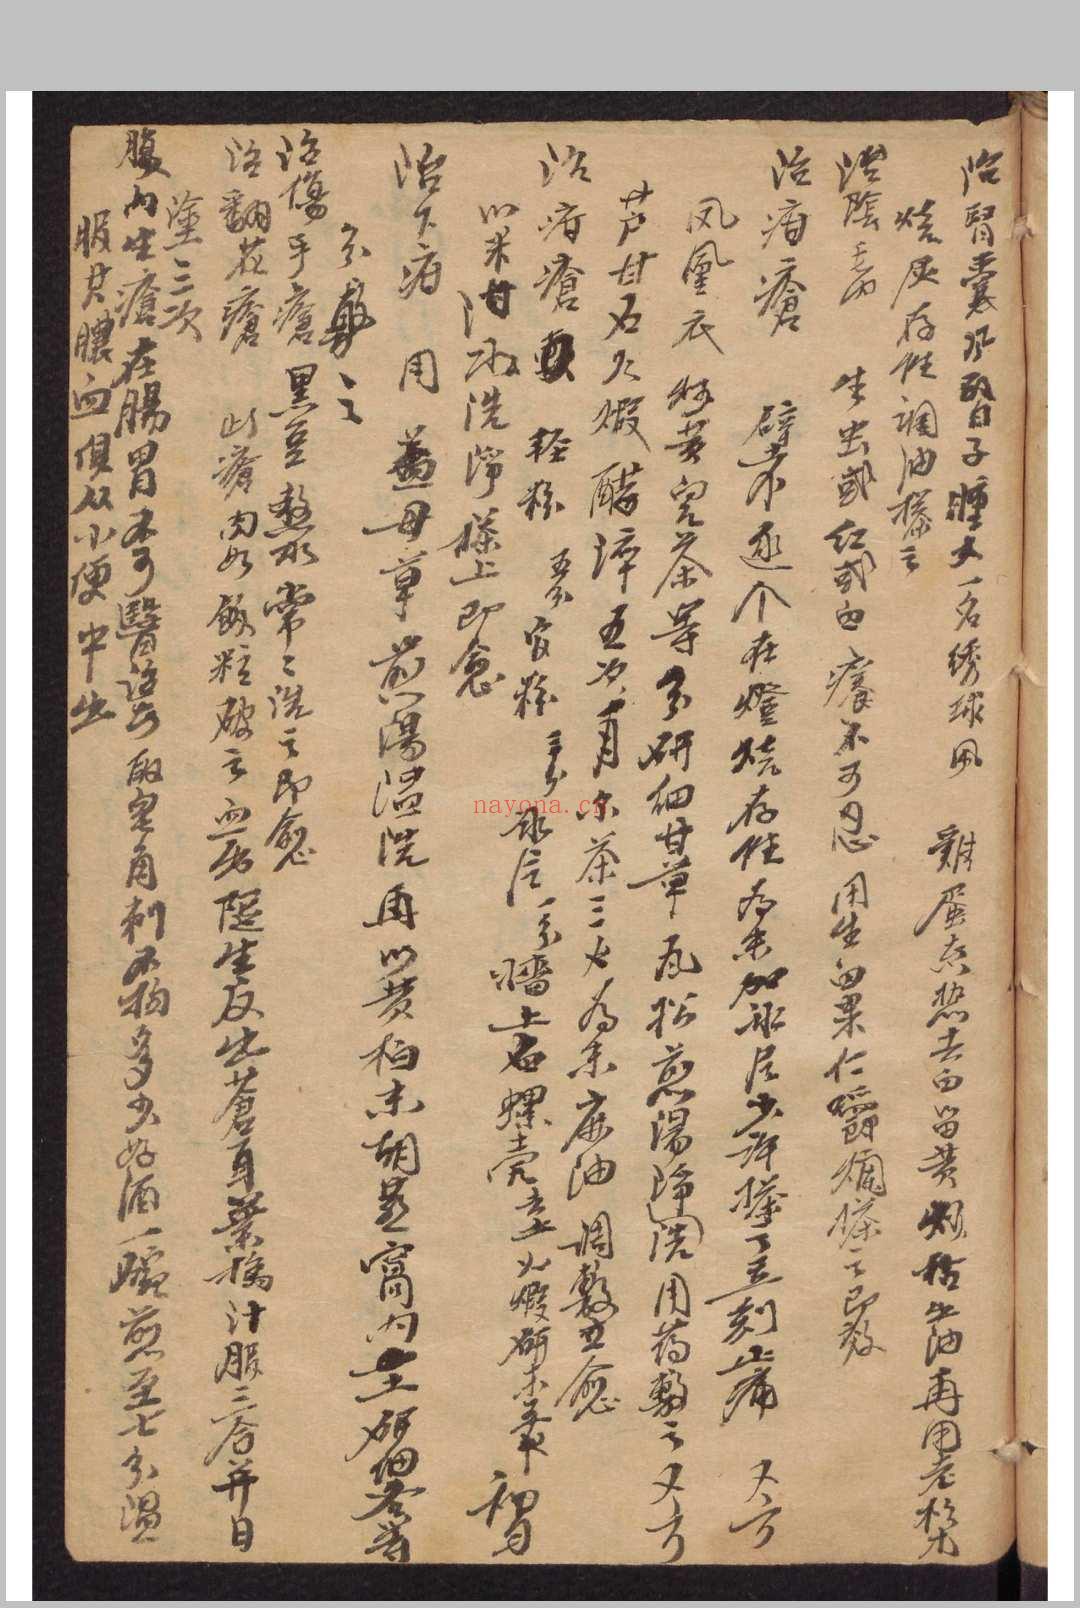 治腎囊风腎子腫大一名绣球风 雞蛋煮热去白留黄炒枯出油再用老杉木
燒灰存性調油搽之
治陰毛内 生虫或红或白癢不可忍 用生白果仁嚼爛搽之即效
治疳瘡 壁末逐个在燈燒存性為末加冰片少許搽了立刻止痛 又方
凤凰衣 黄 兒茶等分研细甘草瓦松煎湯净洗用药敷之又方
芦甘石火煅醋淬五次 青 尔茶三 為末麻油調敷立愈
治疳瘡 轻粉五分 官粉三分 冰片一分 墙上白螺壳 火煅研末 初
以米泔水洗净搽上即愈
治下疳 用 益母草煎湯温洗再以黄柏末胡 窩内土研细 等
分敷之
治傷手瘡 黑豆 水常々洗之即愈
治翻花瘡 此瘡内如飯粒破之血 隨生反出蒼耳葉搗汁服三合并日
塗三次
腹内生瘡在腸胃不可醫 取皂角刺不拘多少好酒一碗煎至七分温
服其膿血俱从小便中出
nayona.cn